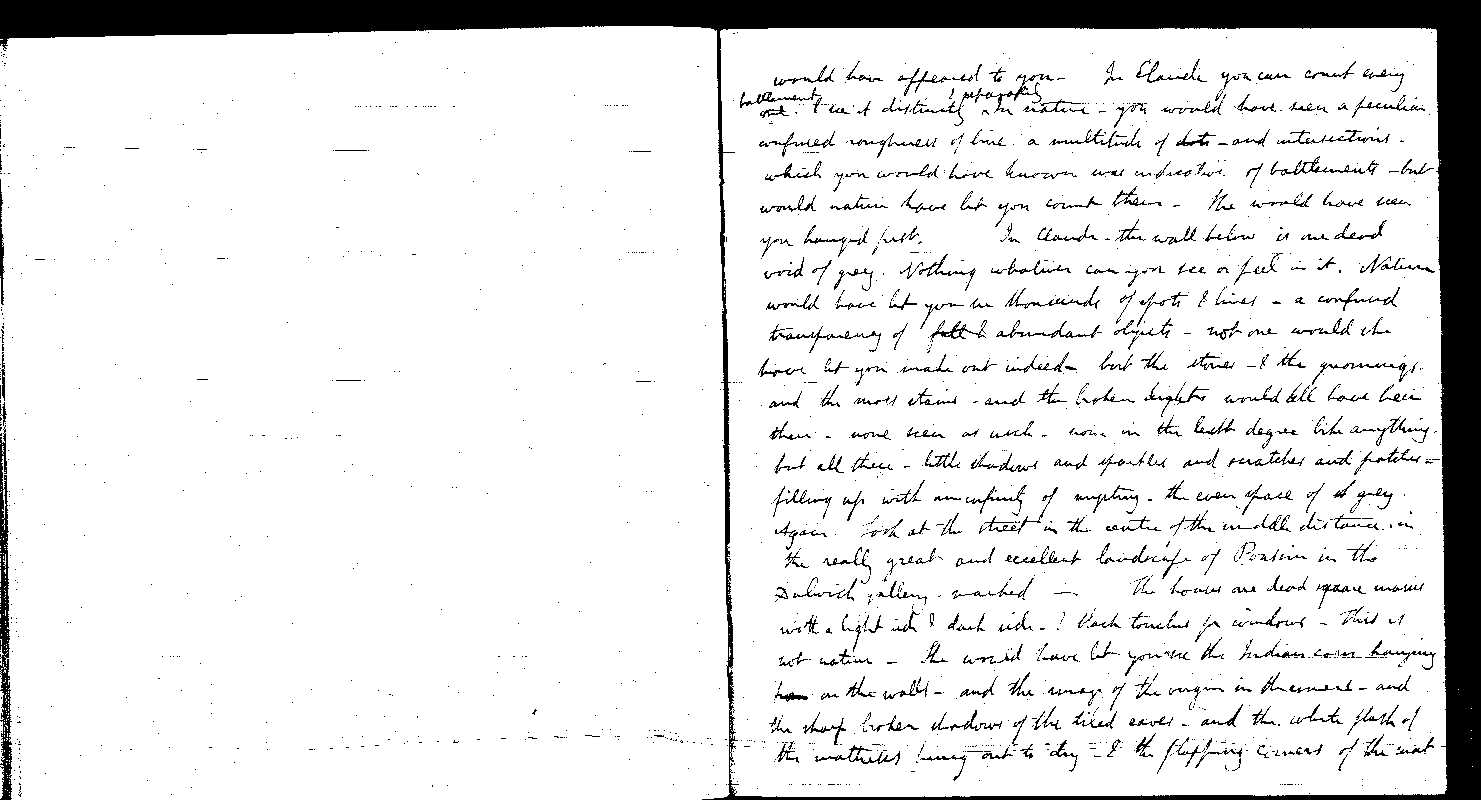 would have appeared to you - In Claude you can count every
battlement
one. & see it distinctly & separately In nature - you would have seen a peculiar
confused roughness of line. a multitude of dots - and intersections -
which you would have known was indicative of battlements - but
would nature have let you count them - She would have seen
you hanged first. In Claude - the wall below is one dead
void of grey. Nothing whatever can you see or feel in it. Nature
would have let you see thousands of spots & lines - a confused
transparency of abundant objects - not one would she
have let you make out indeed - but the stones - & the groinings
and the moss stains - and the broken lights would all have been
there - none seen as such - none in the least degree like anything.
but all there - little shadows and sparkles and scratches and patches -
filling up with an infinity of mystery - the even space of grey.
Again Look at the street in the centre of the middle distance. in
the really great and excellent landscape of Poussin in the
Dulwich gallery. marked — The houses are dead square masses
with a light side & dark side - & black touches for windows - This is
not nature - She would have let you see the Indian corn hanging
on the walls - and the image of the virgin in the - and
the sharp broken shadows of the tiled eaves - and the white flash of
the mattress hung out to dry - & the flapping corners of the mat